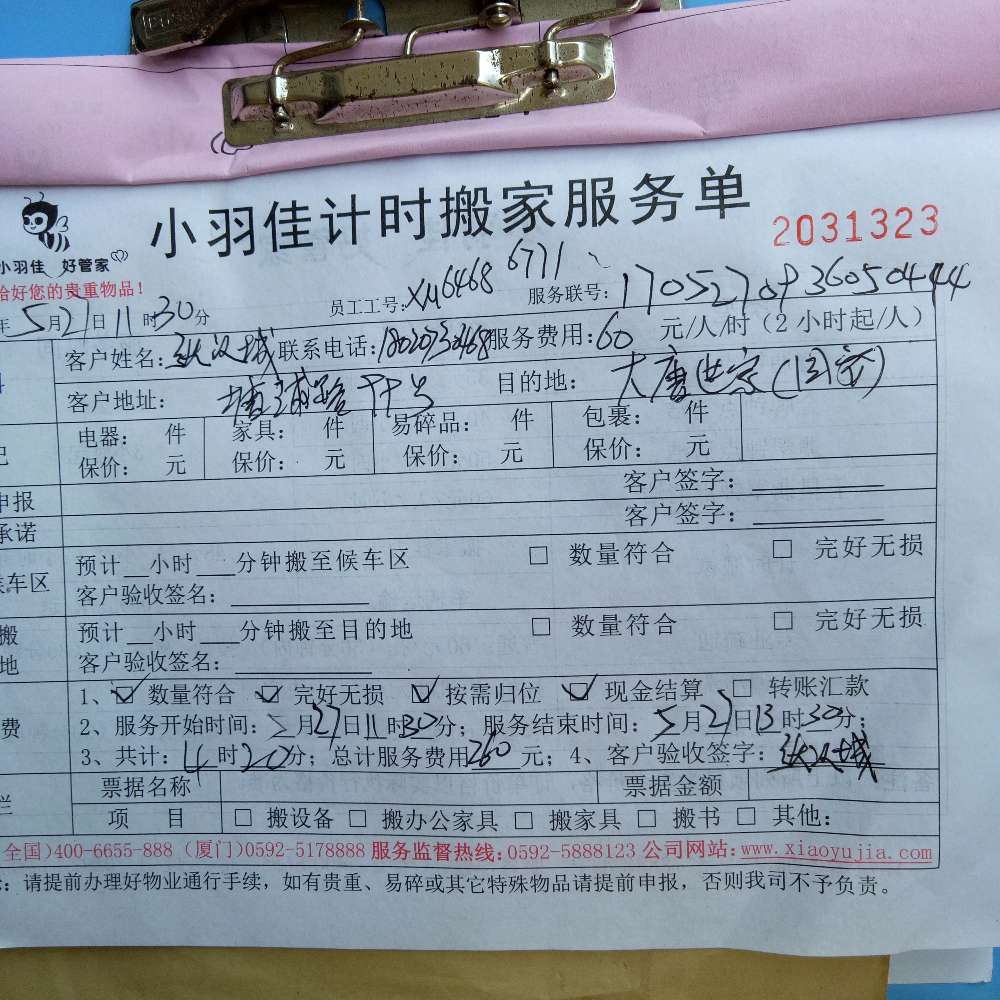 小羽佳计时搬家服务单
2031323
小羽佳 好管家
恰好您的贵重物品！
员工工号：XM6468 6771
服务联号：1705270936050444
年5月21日11时30分
客户姓名： 联系电话：18020730468 服务费用：60 元/人/时（2小时起/人）
客户地址： 目的地：大唐世家(同安)
电器： 件 家具： 件 易碎品： 件 包裹： 件
保价： 元 保价： 元 保价： 元 保价： 元
申报 客户签字：
承诺 客户签字：
预计__小时___分钟搬至候车区 □ 数量符合 □ 完好无损
候车区 客户验收签名：
搬 预计__小时___分钟搬至目的地 □ 数量符合 □ 完好无损
地 客户验收签名：
1、☑ 数量符合 ☑ 完好无损 ☑ 按需归位 ☑ 现金结算 □ 转账汇款
费 2、服务开始时间：5月27日11时30分；服务结束时间：5月27日13时30分；
3、共计：4时20分；总计服务费用260元；4、客户验收签字：
栏 票据名称 票据金额
项 目 □ 搬设备 □ 搬办公家具 □ 搬家具 □ 搬书 □ 其他：
全国)400-6655-888（厦门)0592-5178888 服务监督热线：0592-5888123 公司网站：www.xiaoyujia.com
：请提前办理好物业通行手续，如有贵重、易碎或其它特殊物品请提前申报，否则我司不予负责。